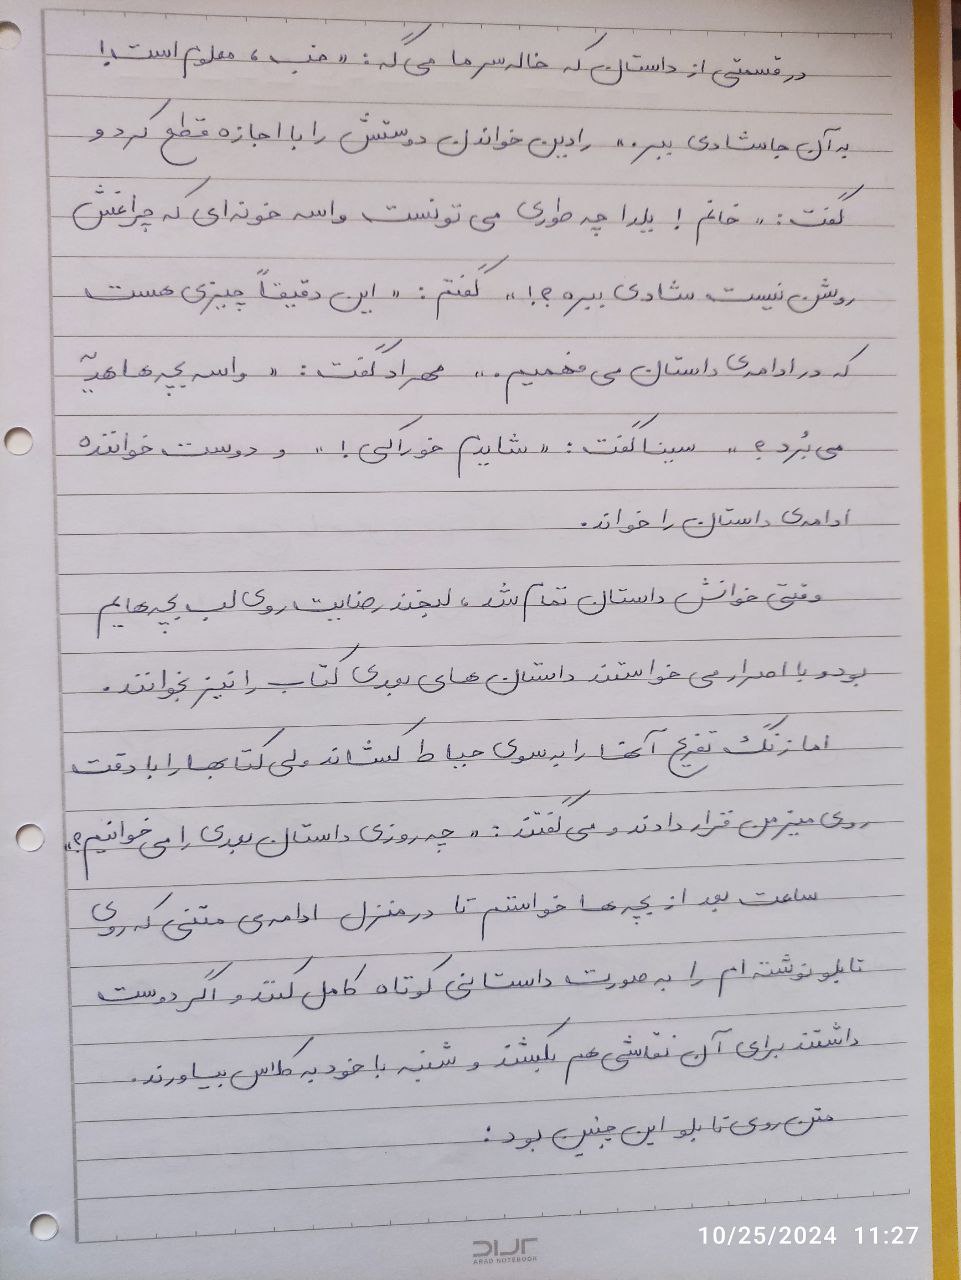 در قسمتی از داستان که خاله سرما می گه: « خب، معلوم است!
به آن جا شادی ببر.» رادین خواندن دوستش را با اجازه قطع کرد و
گفت: « خانم! یلدا چه طوری می تونست واسه خونه ای که چراغش
روشن نیست شادی ببره؟!» گفتم: « این دقیقاً چیزی هست
که در ادامه ی داستان می فهمیم.» مهراد گفت: « واسه بچه ها هدیه
می بُرد؟» سینا گفت: « شایدم خوراکی!» و دوست خواننده
ادامه ی داستان را خواند.
وقتی خوانش داستان تمام شد، لبخند رضایت روی لب بچه هایم
بود و با اصرار می خواستند داستان های بعدی کتاب را نیز بخوانند.
اما زنگ تفریح آنها را به سوی حیاط کشاند ولی کتابها را با دقت
روی میز من قرار دادند و می گفتند: « چه روزی داستان بعدی را می خوانیم؟»
ساعت بعد از بچه ها خواستم تا در منزل ادامه ی متنی که روی
تابلو نوشته ام را به صورت داستانی کوتاه کامل کنند و اگر دوست
داشتند برای آن نقاشی هم بکشند و شنبه با خود به کلاس بیاورند.
متن روی تابلو این چنین بود:
10/25/2024 11:27
ARAD NOTEBOOK